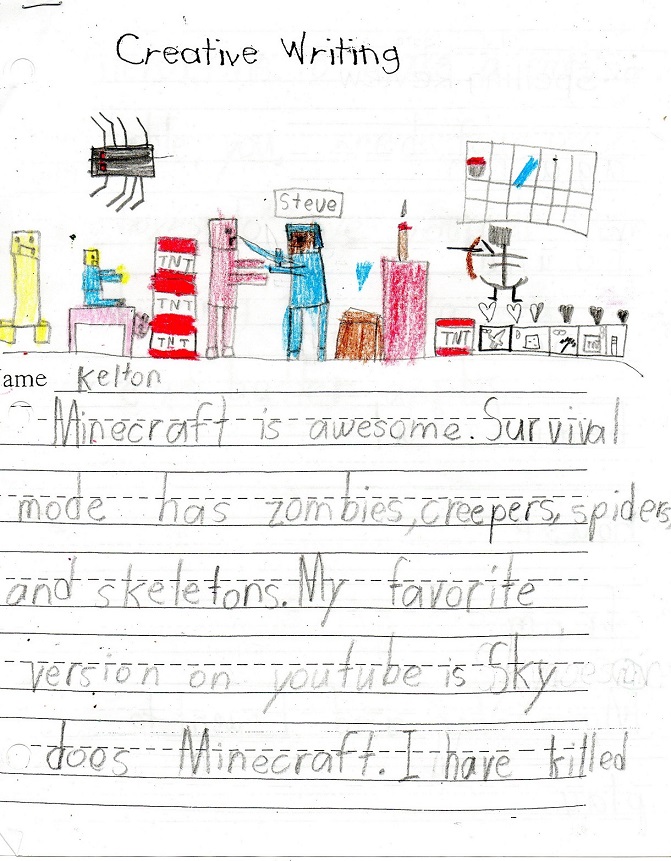 Creative Writing
Steve
TNT
TNT
TNT
TNT
ame Kelton
Minecraft is awesome. Survival
mode has zombies, creepers, spiders,
and skeletons. My favorite
version on youtube is Sky
does Minecraft. I have killed